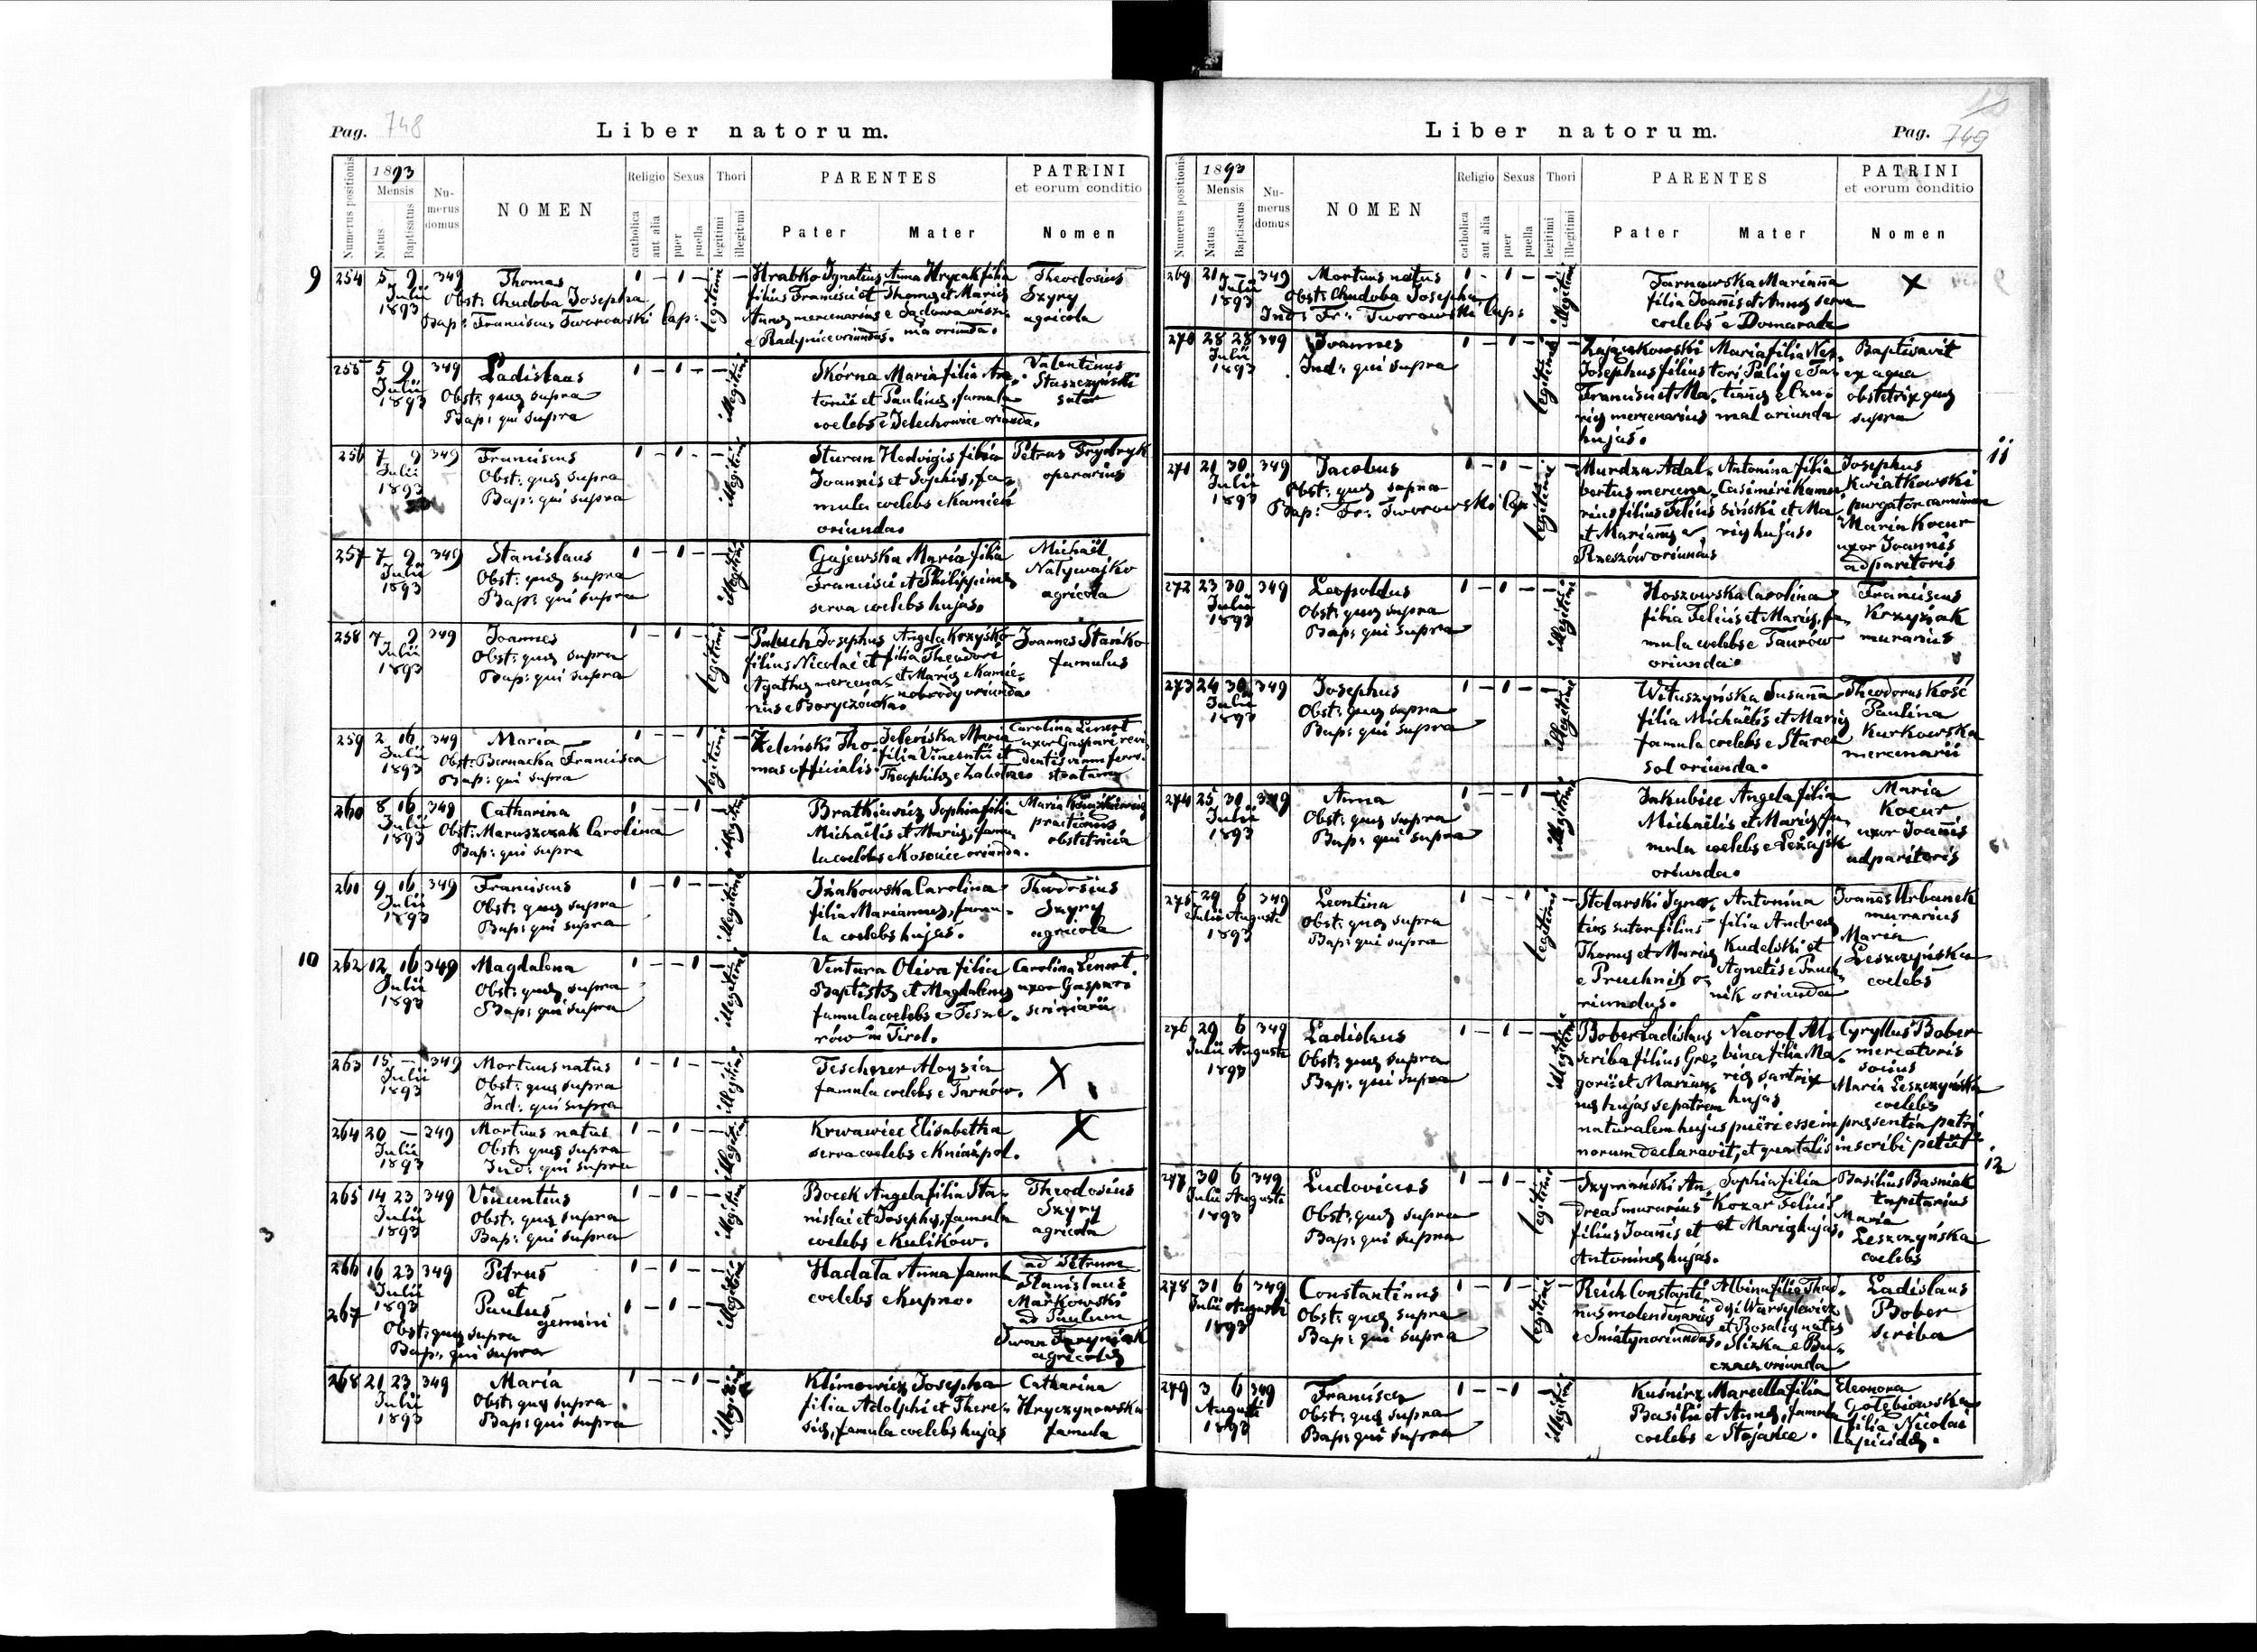 Pag. 748
Liber natorum.
Numerus positionis
1893
Mensis
Natus
Baptisatus
Nu-
merus
domus
NOMEN
Religio
catholica
aut alia
Sexus
puer
puella
Thori
legitimi
illegitimi
PARENTES
Pater Mater
PATRINI
et eorum conditio
Nomen
9
254 5 9 349 Thomas 1 – 1 – legitimi –
Julii
1893
Obst: Chudoba Josepha
Bap: Franciscus Tworowski Cap:
Hrabko Ignatius Anna Hrycak filia
filius Francisci et Thomæ et Mariæ
Annæ mercenarius e Sadowa wisz-
e Radynice oriundus. nia oriunda.
Theodosius
Szyry
agricola
255 5 9 349 Ladislaus 1 – 1 – – illegitimi
Julii
1893
Obst: quæ supra
Bap: qui supra
Skórna Maria filia An-
tonii et Paulinæ, famula
coelebs e Delechowice oriunda.
Valentinus
Staszczyński
sutor
256 7 9 349 Franciscus 1 – 1 – – illegitimi
Julii
1893
Obst: quæ supra
Bap: qui supra
Sturan Hedvigis filia
Joannis et Sophiæ, fa-
mula coelebs e Kamień
oriunda.
Petrus Frydryk
operarius
257 7 9 349 Stanislaus 1 – 1 – – illegitimi
Julii
1893
Obst: quæ supra
Bap: qui supra
Gajewska Maria filia
Francisci et Philippinæ
serva coelebs hujas.
Michaël
Natywajko
agricola
258 7 9 349 Joannes 1 – 1 – legitimi –
Julii
1893
Obst: quæ supra
Bap: qui supra
Paluch Josephus Angela Krzyśko
filius Nicolai et filia Theodori
Agathæ mercena- et Mariæ e Kamie-
rius e Boryczówka. nobrody oriunda.
Joannes Stańko
famulus
259 2 16 349 Maria 1 – – 1 legitimi –
Julii
1893
Obst: Bernacka Francisca
Bap: qui supra
Zeleński Tho- Zeleńska Maria
mas officialis. filia Vincentii et
Theophilæ e Zabotrze
Carolina Lenert
uxor Gaspari revi-
dentis viam ferro-
stratam
260 8 16 349 Catharina 1 – – 1 – illegitimi
Julii
1893
Obst: Maruszczak Carolina
Bap: qui supra
Bratkiewicz Sophia filia
Michaëlis et Mariæ, famu-
la coelebs e Kosowice oriunda.
Maria
practicans
obstetricia
261 9 16 349 Franciscus 1 – 1 – – illegitimi
Julii
1893
Obst: quæ supra
Bap: qui supra
Iżakowska Carolina
filia Mariannæ, famu-
la coelebs hujas.
Theodosius
Szyry
agricola
10
262 12 16 349 Magdalena 1 – – 1 – illegitimi
Julii
1893
Obst: quæ supra
Bap: qui supra
Ventura Oliva filia
Baptistæ et Magdalenæ
famula coelebs e Tesze-
rów in Tirol.
Carolina Lenert
uxor Gaspari
scriniarii
263 15 – 349 Mortuus natus 1 – 1 – – illegitimi
Julii
1893
Obst: quæ supra
Ind: qui supra
Teschner Aloysia
famula coelebs e Tarnów.
X
264 20 – 349 Mortuus natus 1 – 1 – – illegitimi
Julii
1893
Obst: quæ supra
Ind: qui supra
Krwawiec Elisabetha
serva coelebs e Kniażpol.
X
265 14 23 349 Vincentius 1 – 1 – – illegitimi
Julii
1893
Obst: quæ supra
Bap: qui supra
Bocek Angela filia Sta-
nislai et Josephæ, famula
coelebs e Kulików.
Theodosius
Szyry
agricola
266 16 23 349 Petrus 1 – 1 – – illegitimi
Julii
1893
et
267 Paulus 1 – 1 –
gemini
Obst: quæ supra
Bap: qui supra
Hadała Anna famula
coelebs e Kupno.
ad Petrum
Stanislaus
Markowski
ad Paulum
Iwan Saryniak
agricolæ
268 21 23 349 Maria 1 – – 1 – illegitimi
Julii
1893
Obst: quæ supra
Bap: qui supra
Klimowicz Josepha
filia Adolphi et There-
siæ, famula coelebs hujas
Catharina
Hryczynowska
famula
Liber natorum.
Pag. 749
Numerus positionis
1893
Mensis
Natus
Baptisatus
Nu-
merus
domus
NOMEN
Religio
catholica
aut alia
Sexus
puer
puella
Thori
legitimi
illegitimi
PARENTES
Pater Mater
PATRINI
et eorum conditio
Nomen
269 21 – 349 Mortuus natus 1 – 1 – – illegitimi
Julii
1893
Obst: Chudoba Josepha
Ind: Fr: Tworowski Cap:
Tarnawska Marianna
filia Joannis et Annæ serva
coelebs e Domaradz
X
270 28 28 349 Joannes 1 – 1 – legitimi –
Julii
1893
Ind: qui supra
Zajączkowski Maria filia Nes-
Josephus filius tori Paliy e
Francisci et Ma-
riæ mercenarius mal oriunda
hujas.
Baptisavit
ex aqua
obstetrix quæ
supra
11
271 21 30 349 Jacobus 1 – 1 – legitimi –
Julii
1893
Obst: quæ supra
Bap: Fr: Tworowski Cap
Murdza Adal- Antonina filia
bertus mercena- Casimiri Kamie-
rius filius Felicis siński et Ma-
et Mariannæ riæ hujas.
Rzeszów oriundus
Josephus
Kwiatkowski
purgator caminorum
Maria Kocur
uxor Joannis
adparitoris
272 23 30 349 Leopoldus 1 – 1 – – illegitimi
Julii
1893
Obst: quæ supra
Bap: qui supra
Hoszowska Carolina
filia Felicis et Mariæ, fa-
mula coelebs e Taurów
oriunda.
Franciscus
Krzyżak
murarius
273 24 30 349 Josephus 1 – 1 – – illegitimi
Julii
1893
Obst: quæ supra
Bap: qui supra
Wituszyńska Susanna
filia Michaëlis et Mariæ
famula coelebs e Stara
sol oriunda.
Theodorus Kość
Paulina
Kurkowska
mercenarii
274 25 30 349 Anna 1 – – 1 – illegitimi
Julii
1893
Obst: quæ supra
Bap: qui supra
Jakubiec Angela filia
Michaëlis et Mariæ, fa-
mula coelebs e Leżajsk
oriunda.
Maria
Kocur
uxor Joannis
adparitoris
275 29 6 349 Leontina 1 – – 1 legitimi –
Julii Augusti
1893
Obst: quæ supra
Bap: qui supra
Stolarski Igna- Antonina
tius sutor filius filia Andreæ
Thomæ et Mariæ Kudelski et
e Pruchnik o- Agnetis e Pruch-
riundus. nik oriunda
Joannes Urbanek
murarius
Maria
Leszczyńska
coelebs
276 29 6 349 Ladislaus 1 – 1 – – illegitimi
Julii Augusti
1893
Obst: quæ supra
Bap: qui supra
Bober Ladislaus Naorol Al-
scriba filius Gre- bina filia Ma-
gorii et Marian- riæ sartrix
næ hujas se patrem hujas
naturalem hujus pueri esse in præsentia patri-
norum declaravit, et qua talis inscribi petiit
Cyryllus Bober
mercatoris
socius
Maria Leszczyńska
coelebs
12
277 30 6 349 Ludovicus 1 – 1 – legitimi –
Julii Augusti
1893
Obst: quæ supra
Bap: qui supra
Szymański An- Sophia filia
dreas murarius Kozar Felicis
filius Joannis et et Mariæ hujas.
Antoninæ hujas.
Basilius Basniak
tapetarius
Maria
Leszczyńska
coelebs
278 31 6 349 Constantinus 1 – 1 – legitimi –
Julii Augusti
1893
Obst: quæ supra
Bap: qui supra
Reich Constanti- Albina filia Thad-
nus molendinarius dæi Warsylewicz
e Śniatyn oriundus. et Rosaliæ natæ
Slizka e Bu-
czacz oriunda
Ladislaus
Bober
scriba
279 3 6 349 Francisca 1 – – 1 – illegitimi
Augusti
1893
Obst: quæ supra
Bap: qui supra
Kuśnirz Marcella filia
Basilii et Annæ, famula
coelebs e Stojańce.
Eleonora
Gołębiowska
filia Nicolai
lapicidæ.